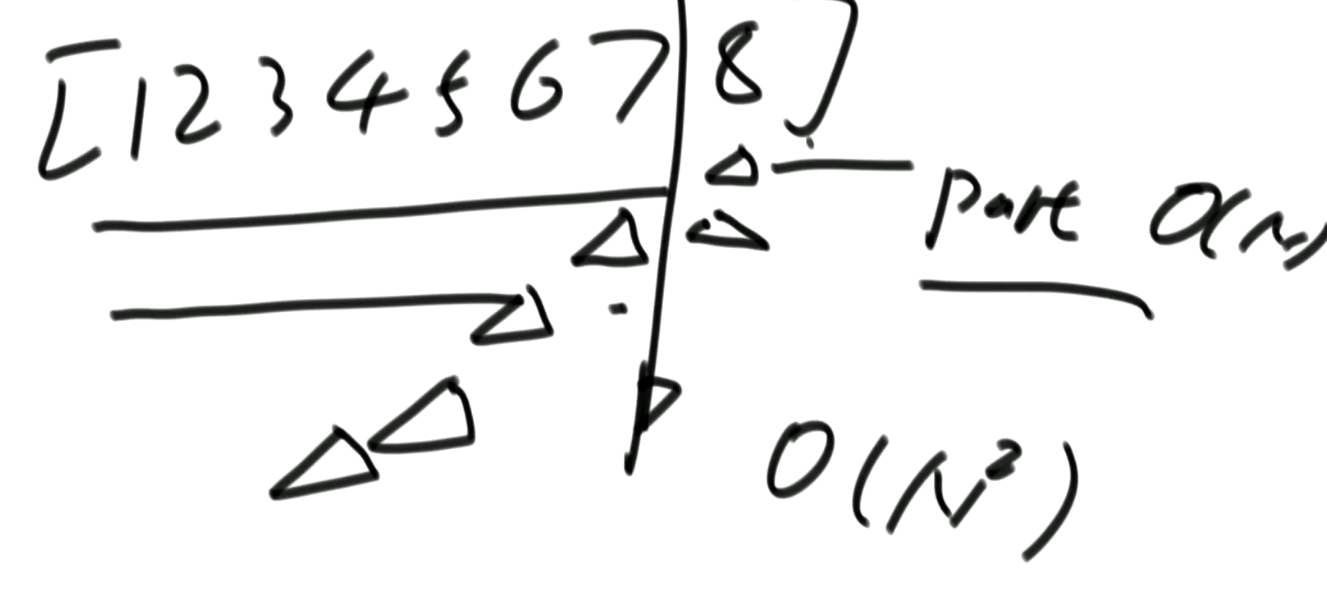 [1 2 3 4 5 6 7 | 8]
part O(N)
O(N²)